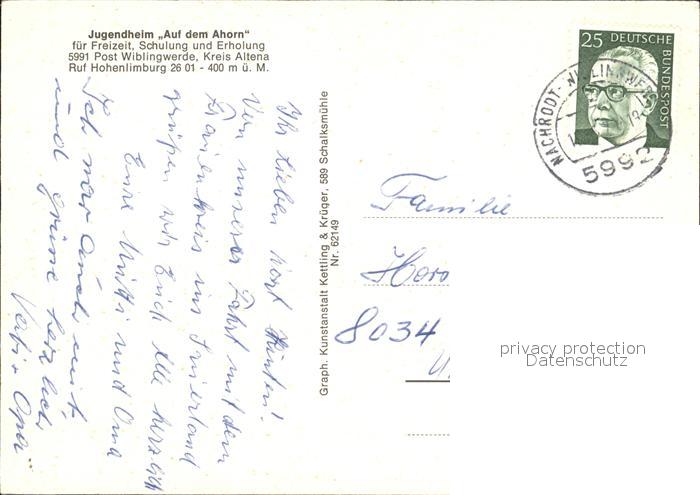 Jugendheim „Auf dem Ahorn“
für Freizeit, Schulung und Erholung
5991 Post Wiblingwerde, Kreis Altena
Ruf Hohenlimburg 26 01 - 400 m ü. M.
Ihr Lieben dort hinten!
Von unserer Fahrt mit dem
Frauenkreis ins Sauerland
grüßen wir Euch alle herzlich
Eure Mutti und Oma
Ich war auch mit,
und grüße herzlich
Vati + Opa
Graph. Kunstanstalt Kettling & Krüger, 589 Schalksmühle
Nr. 62149
25 DEUTSCHE
BUNDESPOST
NACHRODT-WIBLINGWERDE
5992
Familie
8034
privacy protection
Datenschutz